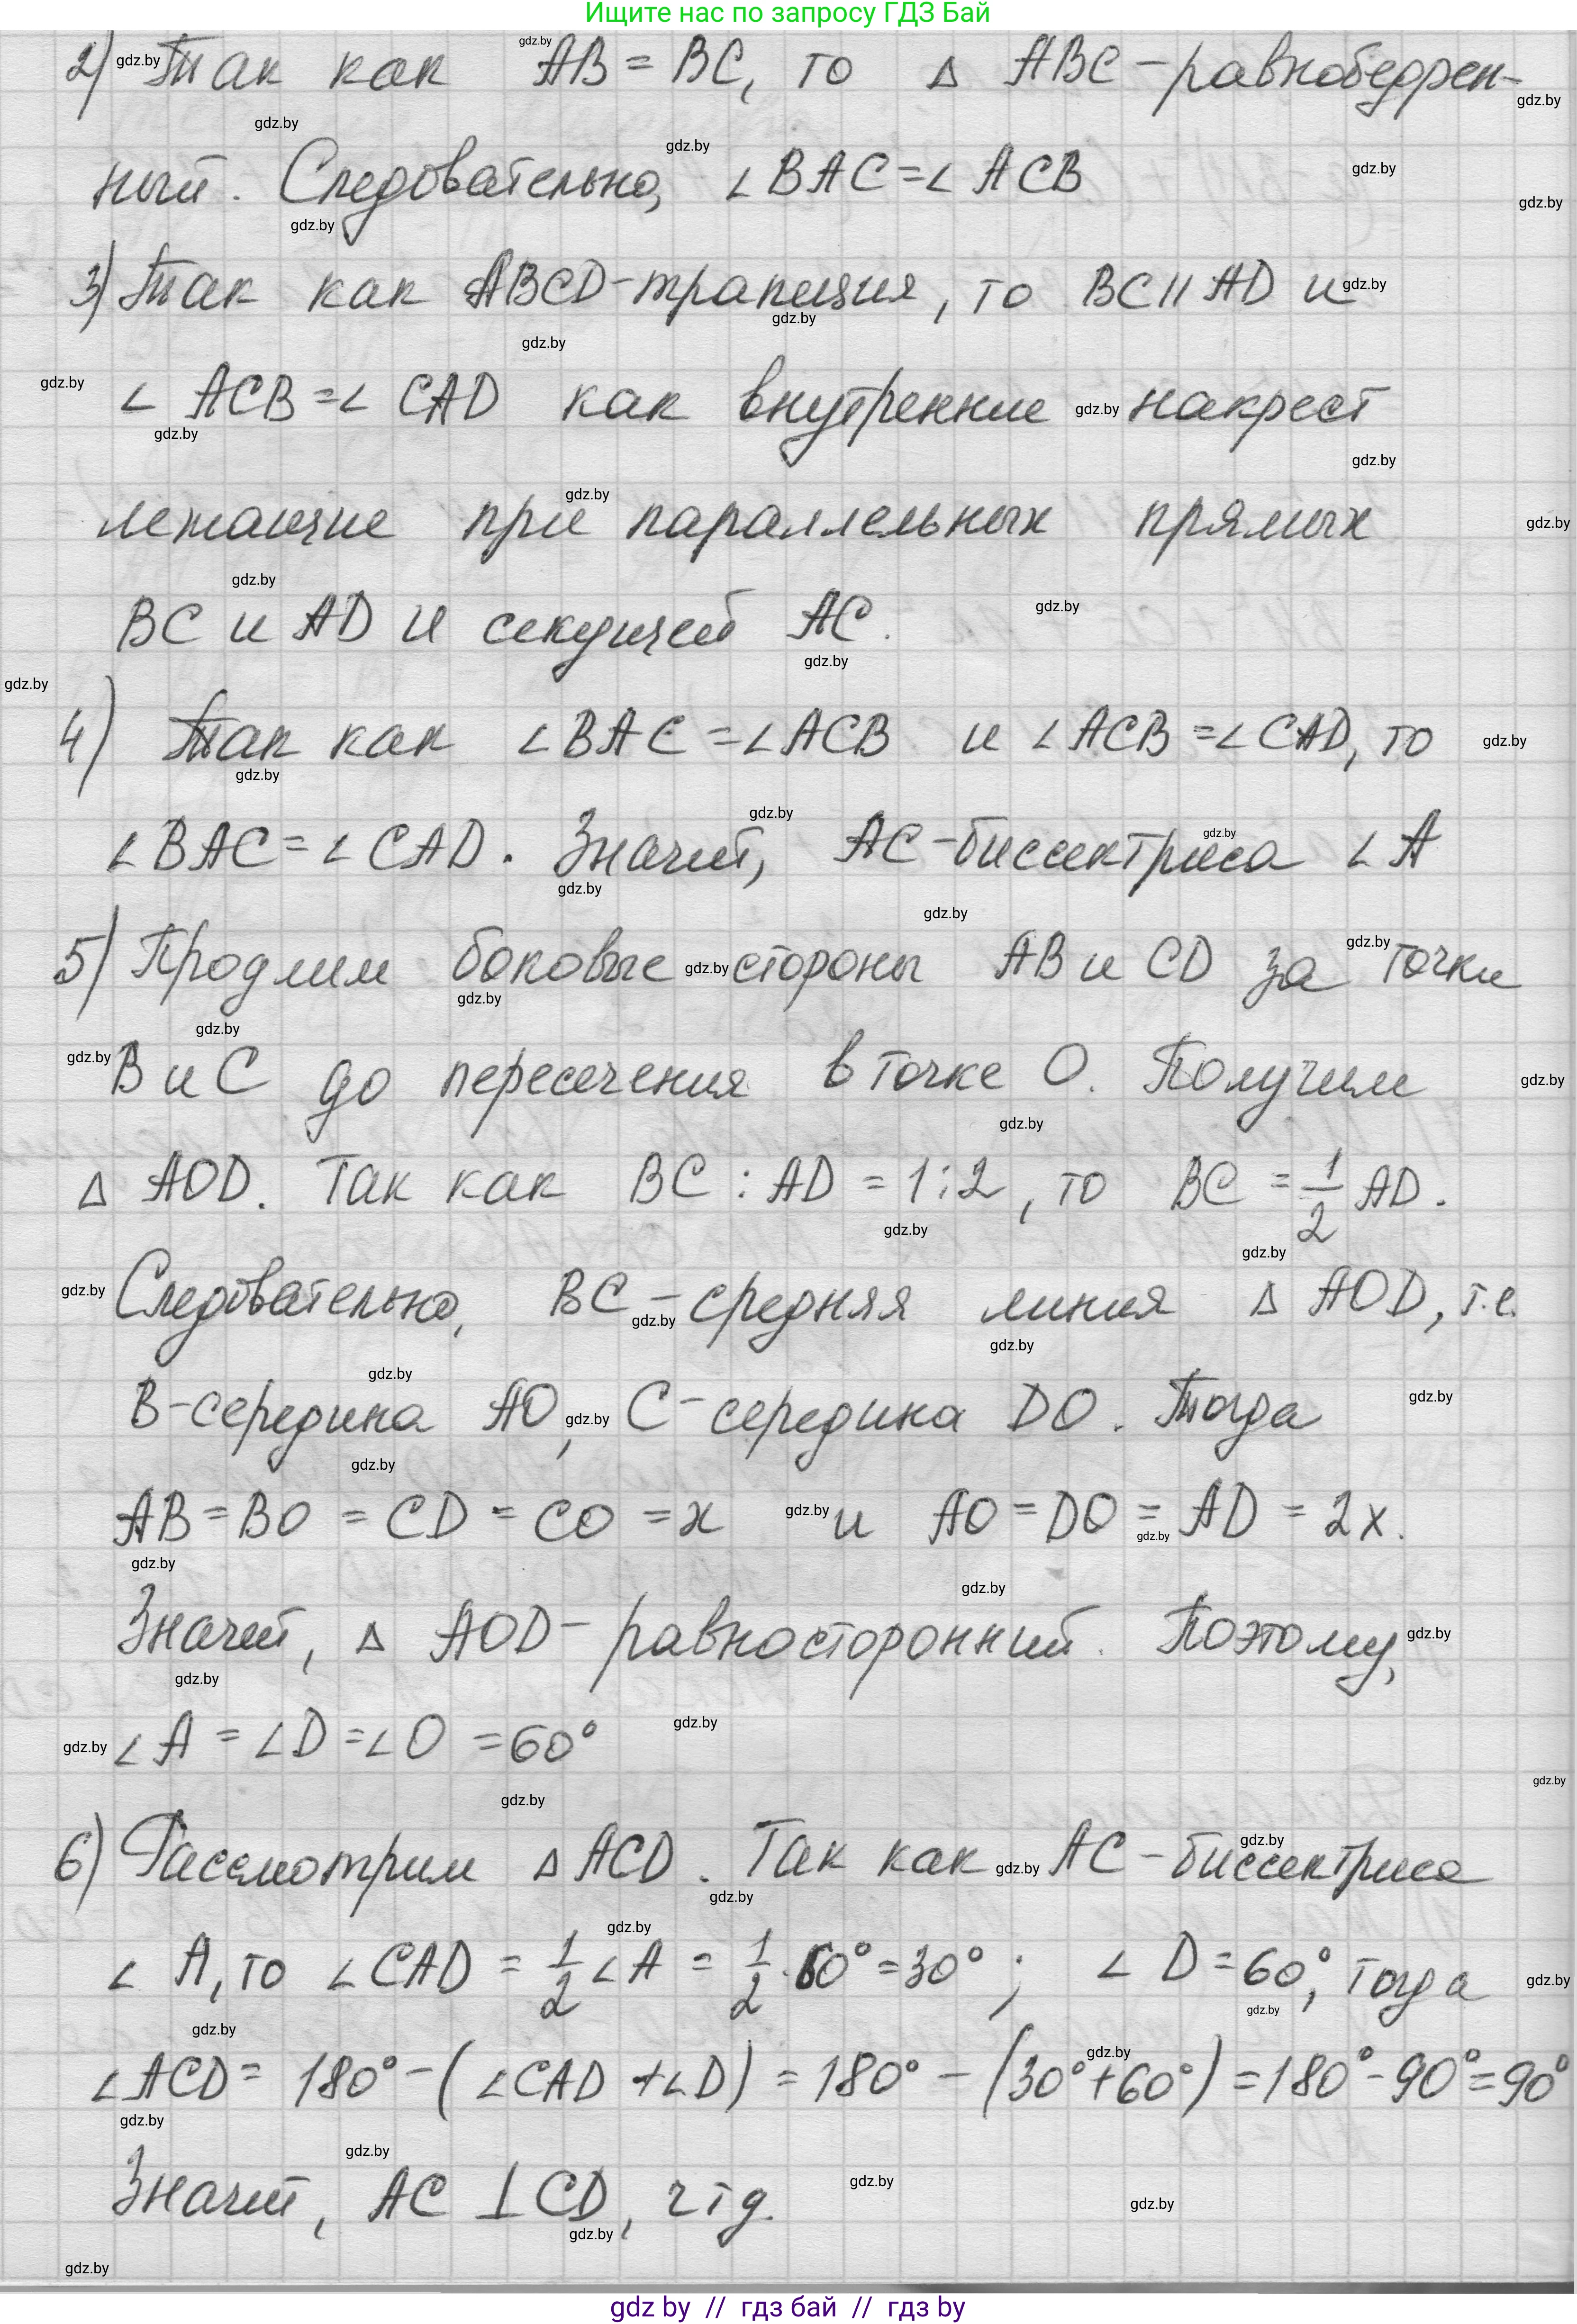 Ищите нас по запросу ГДЗ Бай
2) Так как AB = BC, то Δ ABC - равнобедрен-
ный. Следовательно, ∠BAC = ∠ACB
3) Так как ABCD - трапеция, то BC || AD и
∠ACB = ∠CAD как внутренние накрест
лежащие при параллельных прямых
BC и AD и секущей AC.
4) Так как ∠BAC = ∠ACB и ∠ACB = ∠CAD, то
∠BAC = ∠CAD. Значит, AC - биссектриса ∠A
5) Продлим боковые стороны AB и CD за точки
B и C до пересечения в точке O. Получим
Δ AOD. Так как BC : AD = 1 : 2, то BC = 1/2 AD.
Следовательно, BC - средняя линия Δ AOD, т.е.
B - середина AO, C - середина DO. Тогда
AB = BO = CD = CO = x и AO = DO = AD = 2x.
Значит, Δ AOD - равносторонний. Поэтому,
∠A = ∠D = ∠O = 60°
6) Рассмотрим Δ ACD. Так как AC - биссектриса
∠A, то ∠CAD = 1/2 ∠A = 1/2 · 60° = 30° ; ∠D = 60°, тогда
∠ACD = 180° - (∠CAD + ∠D) = 180° - (30° + 60°) = 180° - 90° = 90°
Значит, AC ⊥ CD, чтд.
gdz by // гдз бай // гдз by